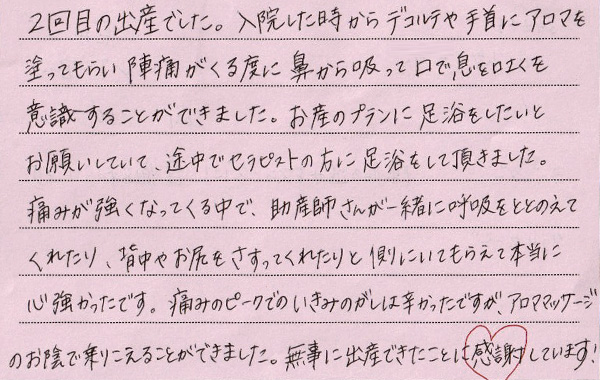 2回目の出産でした。入院した時からデコルテや手首にアロマを
塗ってもらい陣痛がくる度に鼻から吸って口で息を吐くを
意識することができました。お産のプランに足浴をしたいと
お願いしていて、途中でセラピストの方に足浴をして頂きました。
痛みが強くなってくる中で、助産師さんが一緒に呼吸をととのえて
くれたり、背中やお尻をさすってくれたりと側にいてもらえて本当に
心強かったです。痛みのピークでのいきみのがしは辛かったですが、アロママッサージ
のお陰で乗りこえることができました。無事に出産できたことに感謝しています!